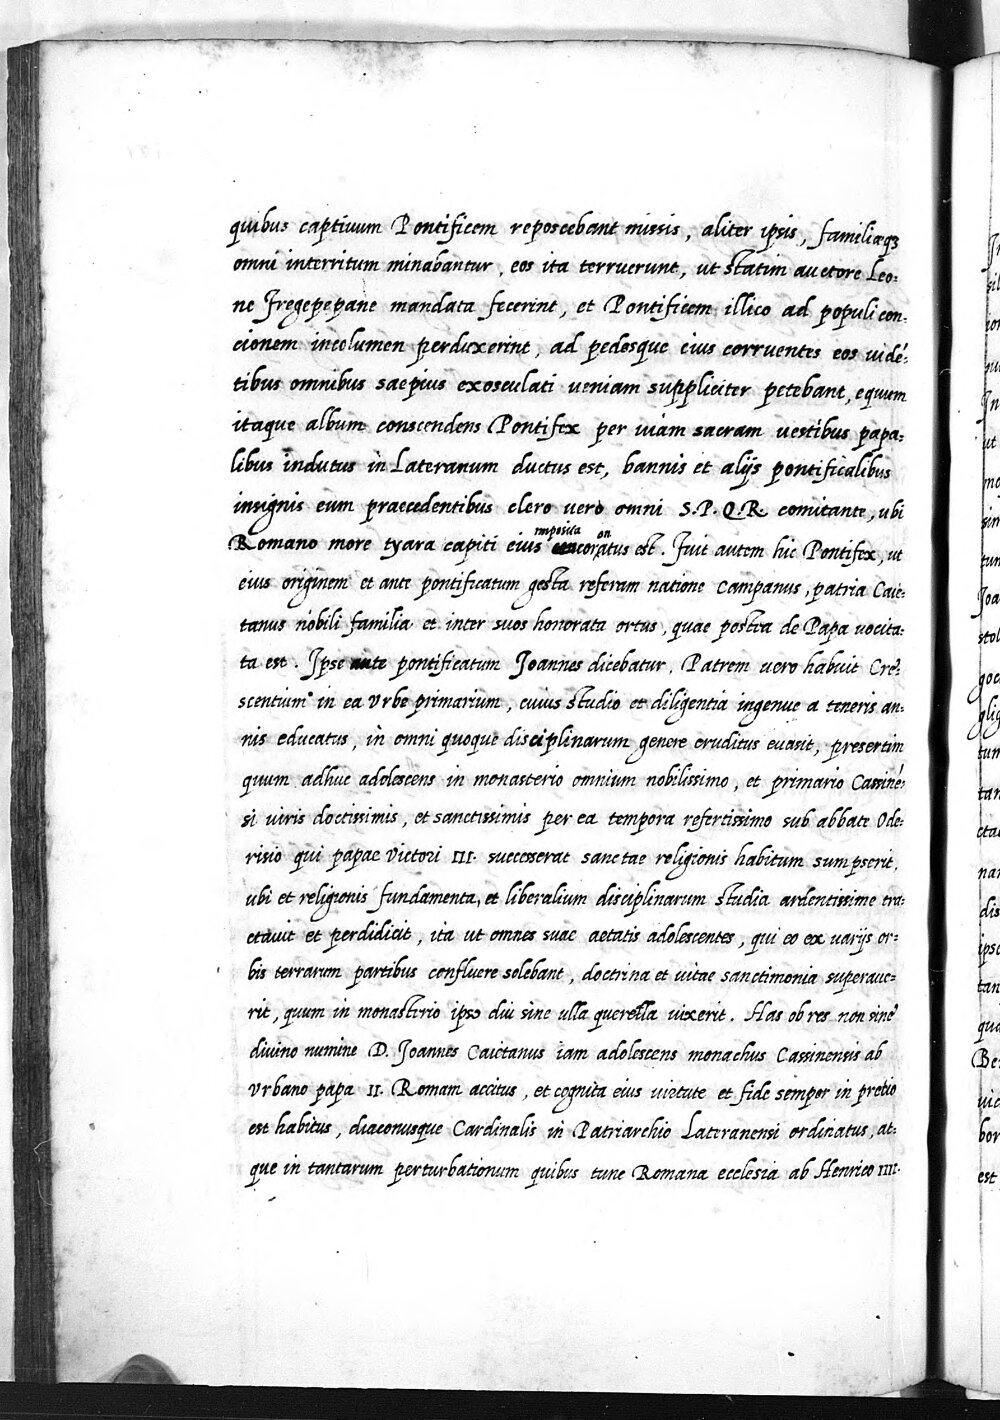 quibus captiuum Pontificem reposcebant missis, aliter ipsis, familiæq3
omni interritum minabantur, eos ita terruerunt, ut statim auctore Leo:
ne Fregepepane mandata fecerint, et Pontificem illico ad populi con:
cionem incolumen perduxerint, ad pedesque eius corruentes eos uidé:
tibus omnibus saepius exosculati ueniam suppliciter petebant, equum
itaque album conscendens Pontifex per uiam sacram uestibus papa:
libus indutus in Lateranum ductus est, bannis et alijs pontificalibus
insignis eum praecedentibus clero uero omni S.P.Q.R. comitante, ubi
Romano more tyara capiti eius imposita coronatus est. Fuit autem hic Pontifex, ut
eius originem et ante pontificatum gesta referam natione Campanus, patria Caie:
tanus nobili familia et inter suos honorata ortus, quae postea de Papa uocita:
ta est. Ipse ante pontificatum Joannes dicebatur, Patrem uero habuit Cre:
scentium in ea Vrbe primarium, cuius studio et diligentia ingenue a teneris an:
nis educatus, in omni quoque disciplinarum genere eruditus euasit, presertim
quum adhuc adolescens in monasterio omnium nobilissimo, et primario Cassiné:
si uiris doctissimis, et sanctissimis per ea tempora refertissimo sub abbate Ode:
risio qui papae Victori III. successerat sanctae religionis habitum sumpserit,
ubi et religionis fundamenta, et liberalium disciplinarum studia ardentissime tra:
ctauit et perdidicit, ita ut omnes suae aetatis adolescentes, qui eo ex uarijs or:
bis terrarum partibus confluere solebant, doctrina et uitae sanctimonia superaue:
rit, quum in monasterio ipso diu sine ulla querella uixerit. Has ob res non sine
diuino numine D. Joannes Caietanus iam adolescens monachus Cassinensis ab
Vrbano papa II. Romam accitus, et cognita eius uirtute et fide semper in pretio
est habitus, diaconusque Cardinalis in Patriarchio Lateranensi ordinatus, at:
que in tantarum perturbationum quibus tunc Romana ecclesia ab Henrico IIII.